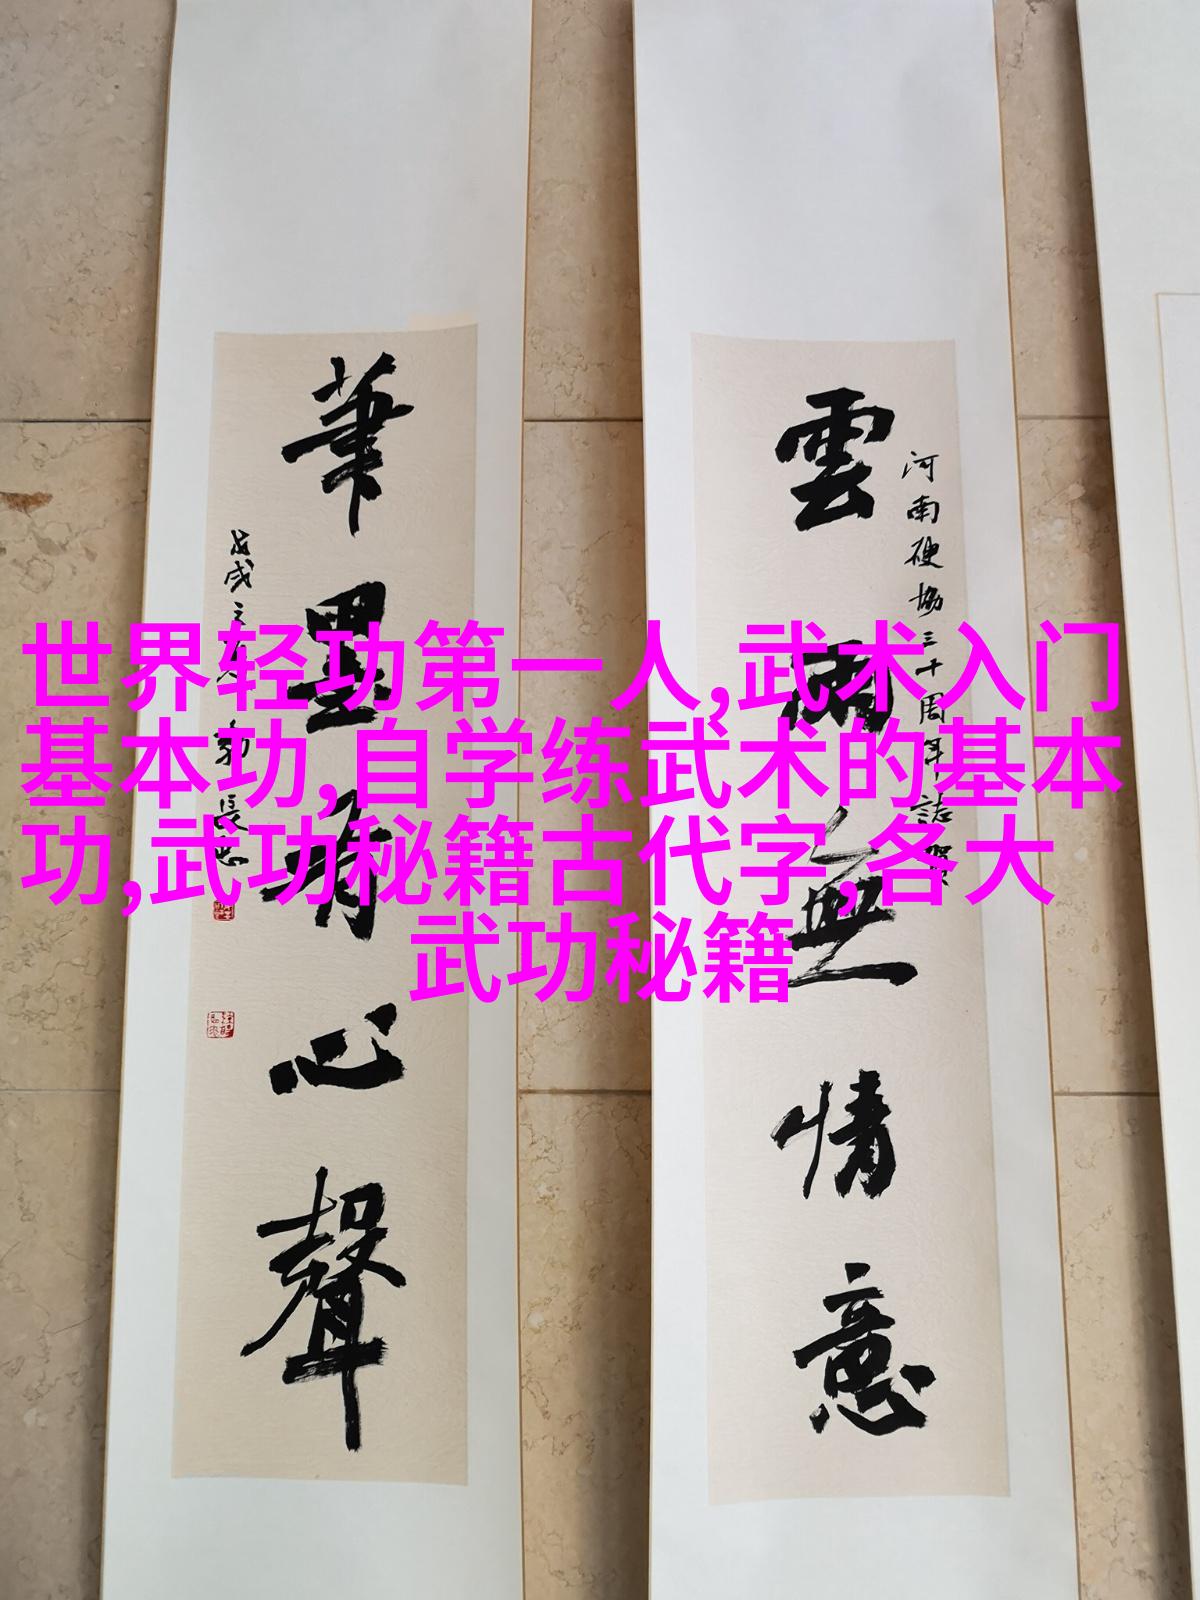 雲雨無情意
河南硬協三十周年誌賀
筆墨有心聲
戊戌之
世界轻功第一人,武术入门
基本功,自学练武术的基本
功,武功秘籍古代字,各大
武功秘籍